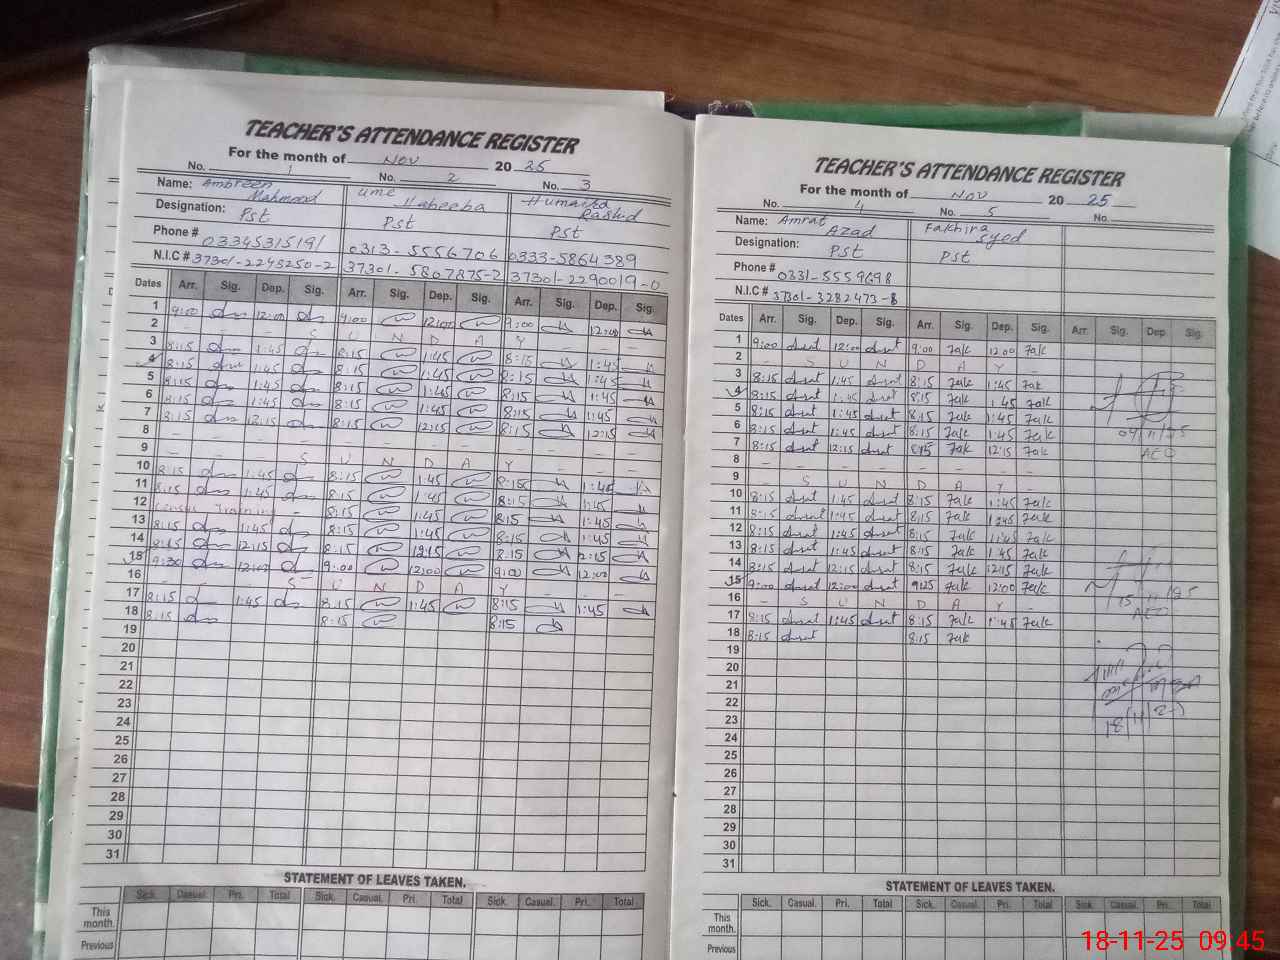 TEACHER'S ATTENDANCE REGISTER
For the month of Nov 20 25
No. 1 No. 2 No. 3
Name: Ambreen Mahmood Ume Habeeba Humaira Rashid
Designation: Pst Pst Pst
Phone # 03345315191 0313-5556706 0333-5864389
N.I.C # 37301-2245250-2 37301-5807875-2 37301-2290019-0
Dates Arr. Sig. Dep. Sig. Arr. Sig. Dep. Sig. Arr. Sig. Dep. Sig.
1 9:00 12:00 9:00 12:00 9:00 12:00
2 - - - S U N D A Y - - -
3 8:15 1:45 8:15 1:45 8:15 1:45
4 8:15 1:45 8:15 1:45 8:15 1:45
5 8:15 1:45 8:15 1:45 8:15 1:45
6 8:15 1:45 8:15 1:45 8:15 1:45
7 8:15 12:15 8:15 12:15 8:15 12:15
8 - - - - - - - - - -
9 - - - S U N D A Y - - -
10 8:15 1:45 8:15 1:45 8:15 1:45
11 8:15 1:45 8:15 1:45 8:15 1:45
12 Training 8:15 1:45 8:15 1:45
13 8:15 1:45 8:15 1:45 8:15 1:45
14 8:15 12:15 8:15 12:15 8:15 12:15
15 9:30 12:00 9:00 12:00 9:00 12:00
16 S U N D A Y
17 8:15 1:45 8:15 1:45 8:15 1:45
18 8:15 8:15 8:15
19
20
21
22
23
24
25
26
27
28
29
30
31
STATEMENT OF LEAVES TAKEN.
Sick. Casual. Pri. Total Sick. Casual. Pri. Total Sick. Casual. Pri. Total
This month.
Previous
TEACHER'S ATTENDANCE REGISTER
For the month of Nov 20 25
No. 4 No. 5 No.
Name: Amrat Azad Fakhira Syed
Designation: Pst Pst
Phone # 0331-5559698
N.I.C # 37301-3282473-8
Dates Arr. Sig. Dep. Sig. Arr. Sig. Dep. Sig. Arr. Sig. Dep. Sig.
1 9:00 12:00 9:00 12:00
2 - S U N D A Y -
3 8:15 1:45 8:15 1:45
4 8:15 1:45 8:15 1:45
5 8:15 1:45 8:15 1:45
6 8:15 1:45 8:15 1:45
04/11/25
7 8:15 12:15 8:15 12:15
AEO
8 - - - - - - - -
9 - S U N D A Y -
10 8:15 1:45 8:15 1:45
11 8:15 1:45 8:15 1:45
12 8:15 1:45 8:15 1:45
13 8:15 1:45 8:15 1:45
14 8:15 12:15 8:15 12:15
15 9:00 12:00 9:25 12:00
15/11/25
16 - S U N D A Y -
AEO
17 8:15 1:45 8:15 1:45
18 8:15 8:15
19
20
21
22
23
18/11/25
24
25
26
27
28
29
30
31
STATEMENT OF LEAVES TAKEN.
Sick. Casual. Pri. Total Sick. Casual. Pri. Total Sick. Casual. Pri. Total
This month.
Previous
18-11-25 09:45